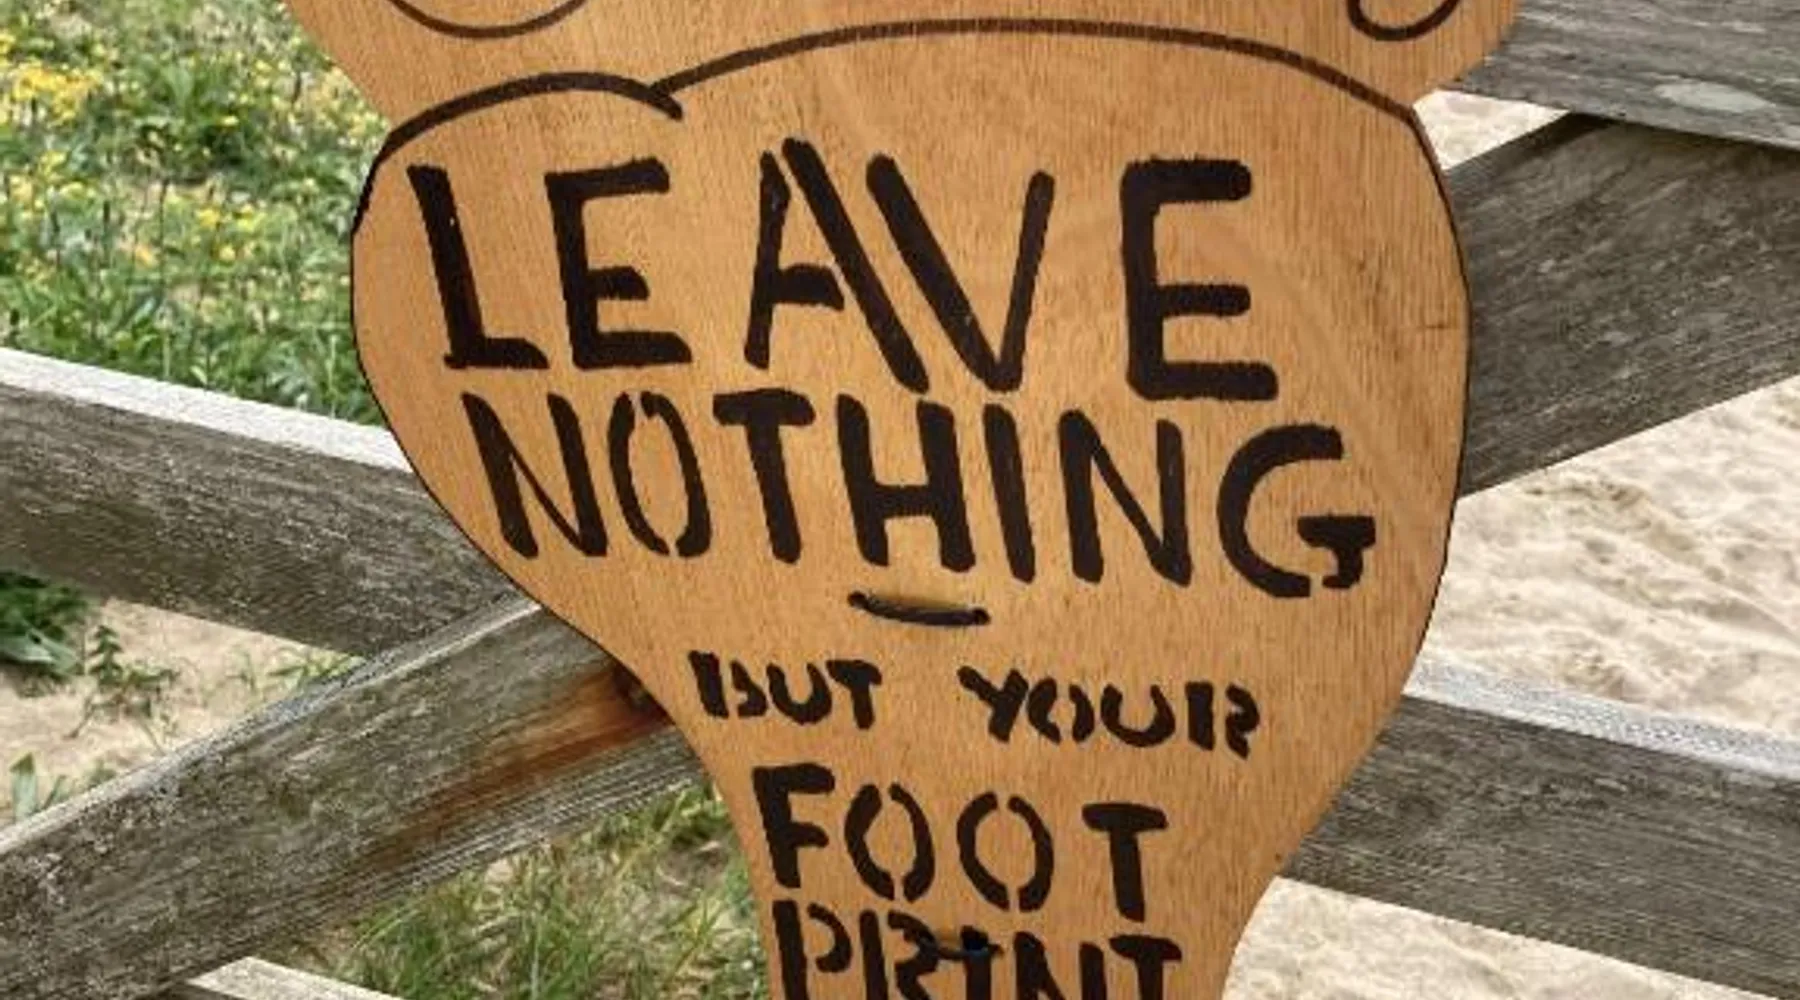 LEAVE
NOTHING
BUT YOUR
FOOT
PRINT